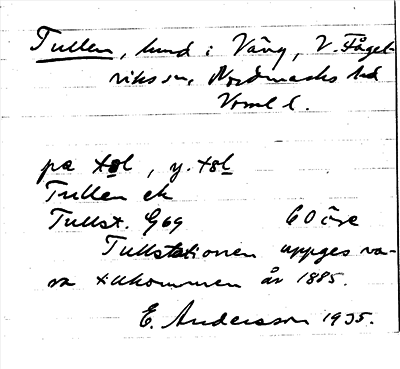 Tullen, lund i Väng, V. Fågel-
viks sn, Nordmarks hd
Vrml l.
pa tɵl, y. tɵl
Tullen ek
Tullst. G69 60 öre
Tullstationen uppges va-
ra tillkommen år 1885.
E. Andersson 1935.